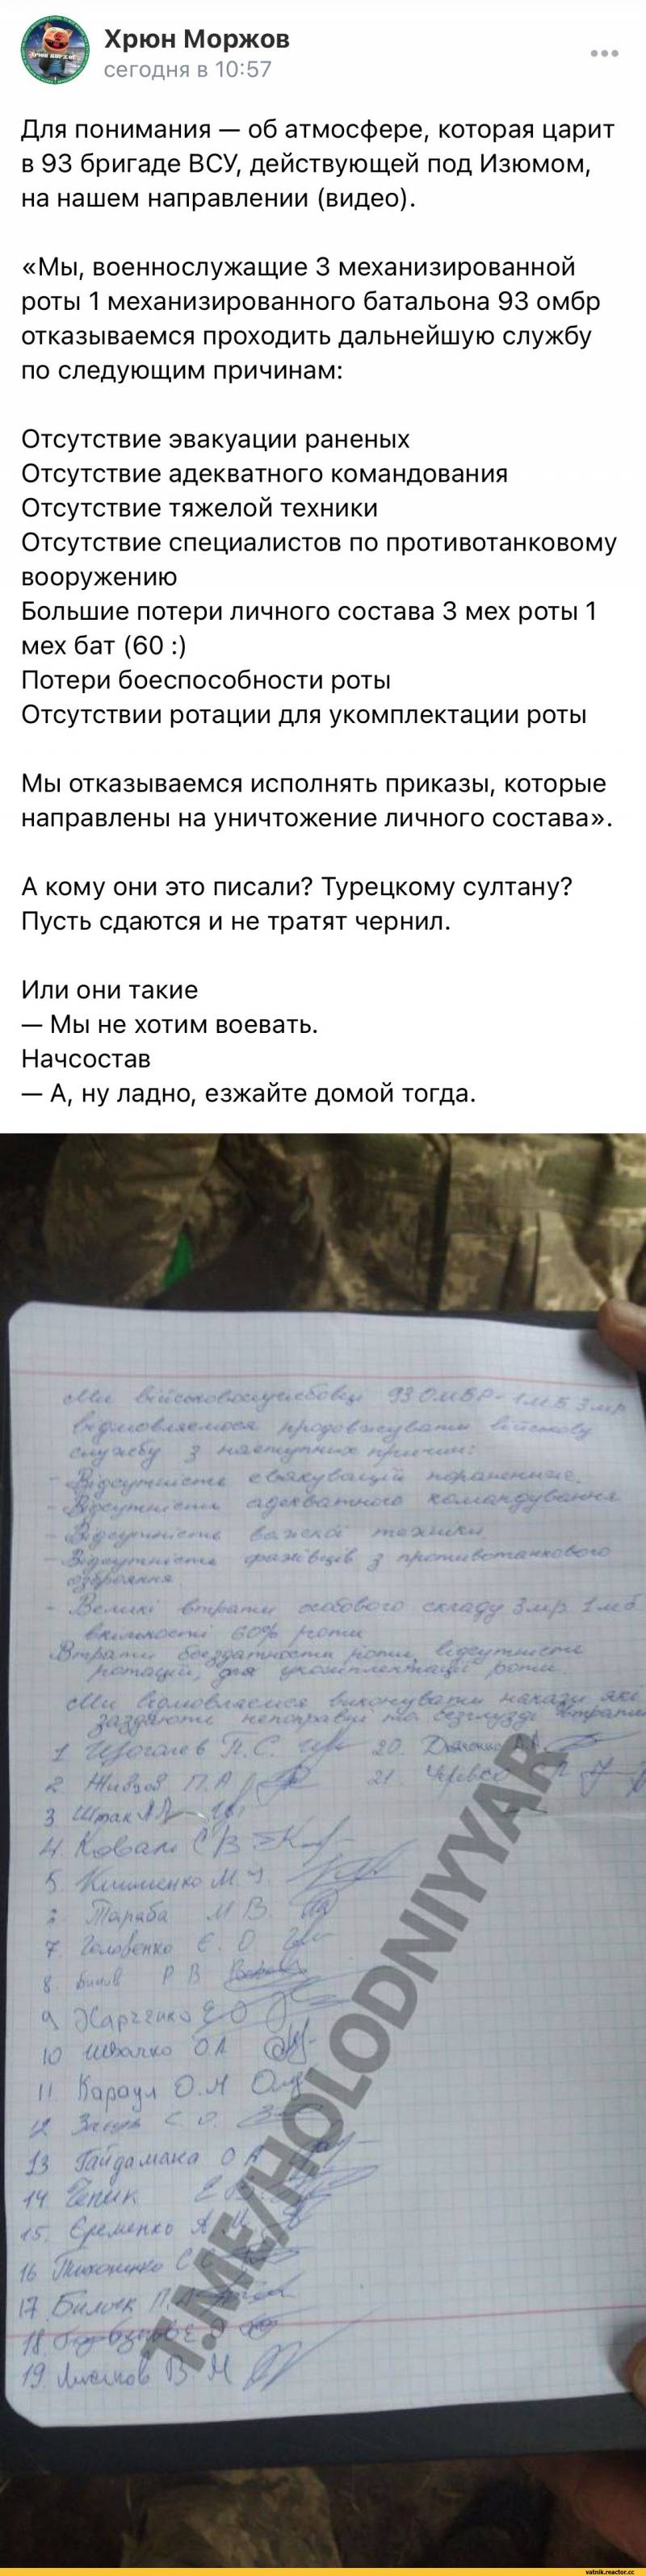 Хрюн Моржов
сегодня в 10:57
Для понимания — об атмосфере, которая царит
в 93 бригаде ВСУ, действующей под Изюмом,
на нашем направлении (видео).
«Мы, военнослужащие 3 механизированной
роты 1 механизированного батальона 93 омбр
отказываемся проходить дальнейшую службу
по следующим причинам:
Отсутствие эвакуации раненых
Отсутствие адекватного командования
Отсутствие тяжелой техники
Отсутствие специалистов по противотанковому
вооружению
Большие потери личного состава 3 мех роты 1
мех бат (60 :)
Потери боеспособности роты
Отсутствии ротации для укомплектации роты
Мы отказываемся исполнять приказы, которые
направлены на уничтожение личного состава».
А кому они это писали? Турецкому султану?
Пусть сдаются и не тратят чернил.
Или они такие
— Мы не хотим воевать.
Начсостав
— А, ну ладно, езжайте домой тогда.
Ми військовослужбовці 93 ОМБР 1мб 3мр
відмовляемося продовжувати військову
службу з наступних причин:
- Відсутність евакуації поранених.
- Відсутність адекватного командування
- Відсутність важкої техніки
- Відсутність фахівців з противотанкового
озброяння
- Великі втрати особового складу 3мр 1мб
60% роти
Втрати боєздатности роти, відсутність
ротації, для укомплектації роти.
Ми відмовляемся виконувати накази які
1 П.С. 20.
2 П.А 21.
3
4 Коваль С В
5. Клименко М.
Тараба М В.
7. Головенко Є. О
8. Р В
9 Харченко Е О
10 О Л
11 Караул О.М
12
13 Гайдамака О
14 Чепик Е В
15. Єременко А
16
17 П
18
19. В М
T.ME/HOLODNIYYAR
vatnik.reactor.cc